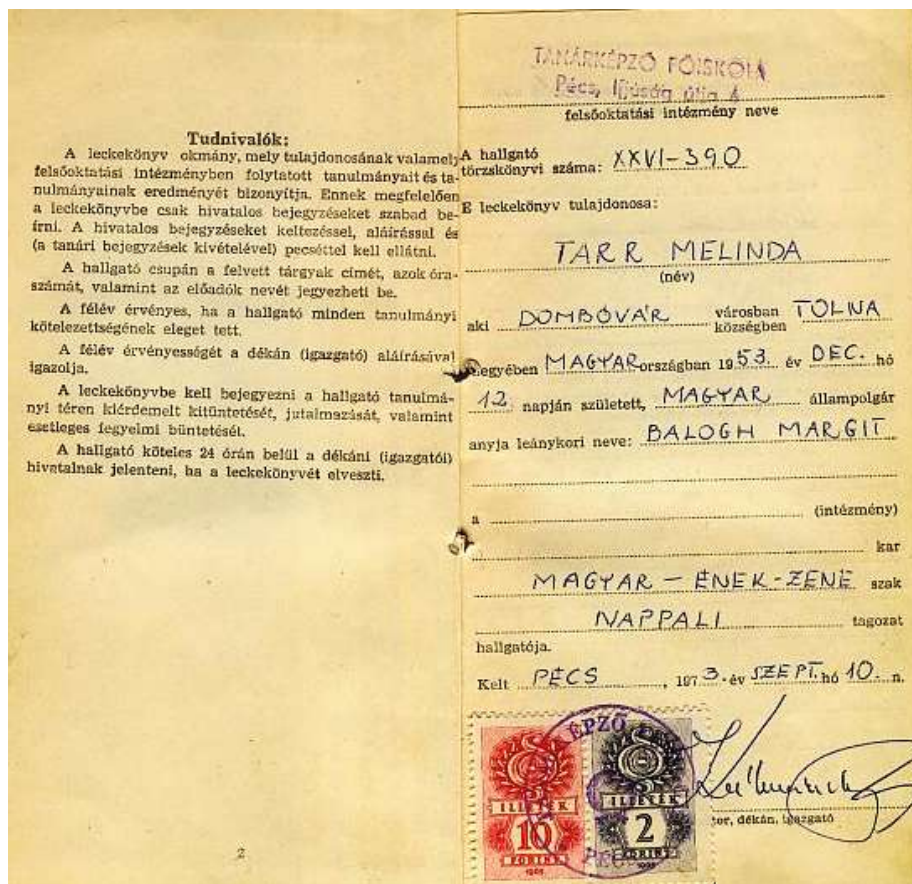 Tudnivalók:
A leckekönyv okmány, mely tulajdonosának valamely
felsőoktatási intézményben folytatott tanulmányait és ta-
nulmányainak eredményét bizonyítja. Ennek megfelelően
a leckekönyvbe csak hivatalos bejegyzéseket szabad be-
írni. A hivatalos bejegyzéseket keltezéssel, aláírással és
(a tanári bejegyzések kivételével) pecséttel kell ellátni.
A hallgató csupán a felvett tárgyak címét, azok óra-
számát, valamint az előadók nevét jegyezheti be.
A félév érvényes, ha a hallgató minden tanulmányi
kötelezettségének eleget tett.
A félév érvényességét a dékán (igazgató) aláírásával
igazolja.
A leckekönyvbe kell bejegyezni a hallgató tanulmá-
nyi téren kiérdemelt kitüntetését, jutalmazását, valamint
esetleges fegyelmi büntetését.
A hallgató köteles 24 órán belül a dékáni (igazgatói)
hivatalnak jelenteni, ha a leckekönyvét elveszti.
2
TANÁRKÉPZŐ FŐISKOLA
Pécs, Ifjúság útja 6
felsőoktatási intézmény neve
A hallgató
törzskönyvi száma: XXVI-390
E leckekönyv tulajdonosa:
TARR MELINDA
(név)
aki DOMBÓVÁR városban községben TOLNA
megyében MAGYARországban 1953. év DEC. hó
12. napján született, MAGYAR állampolgár
anyja leánykori neve: BALOGH MARGIT
a (intézmény)
kar
MAGYAR - ÉNEK-ZENE szak
NAPPALI tagozat
hallgatója.
Kelt PÉCS, 1973. év SZEPT. hó 10. n.
ÉPZŐ
PÉCS
ILLETÉK ILLETÉK
10 2
FORINT FORINT
dékán, igazgató